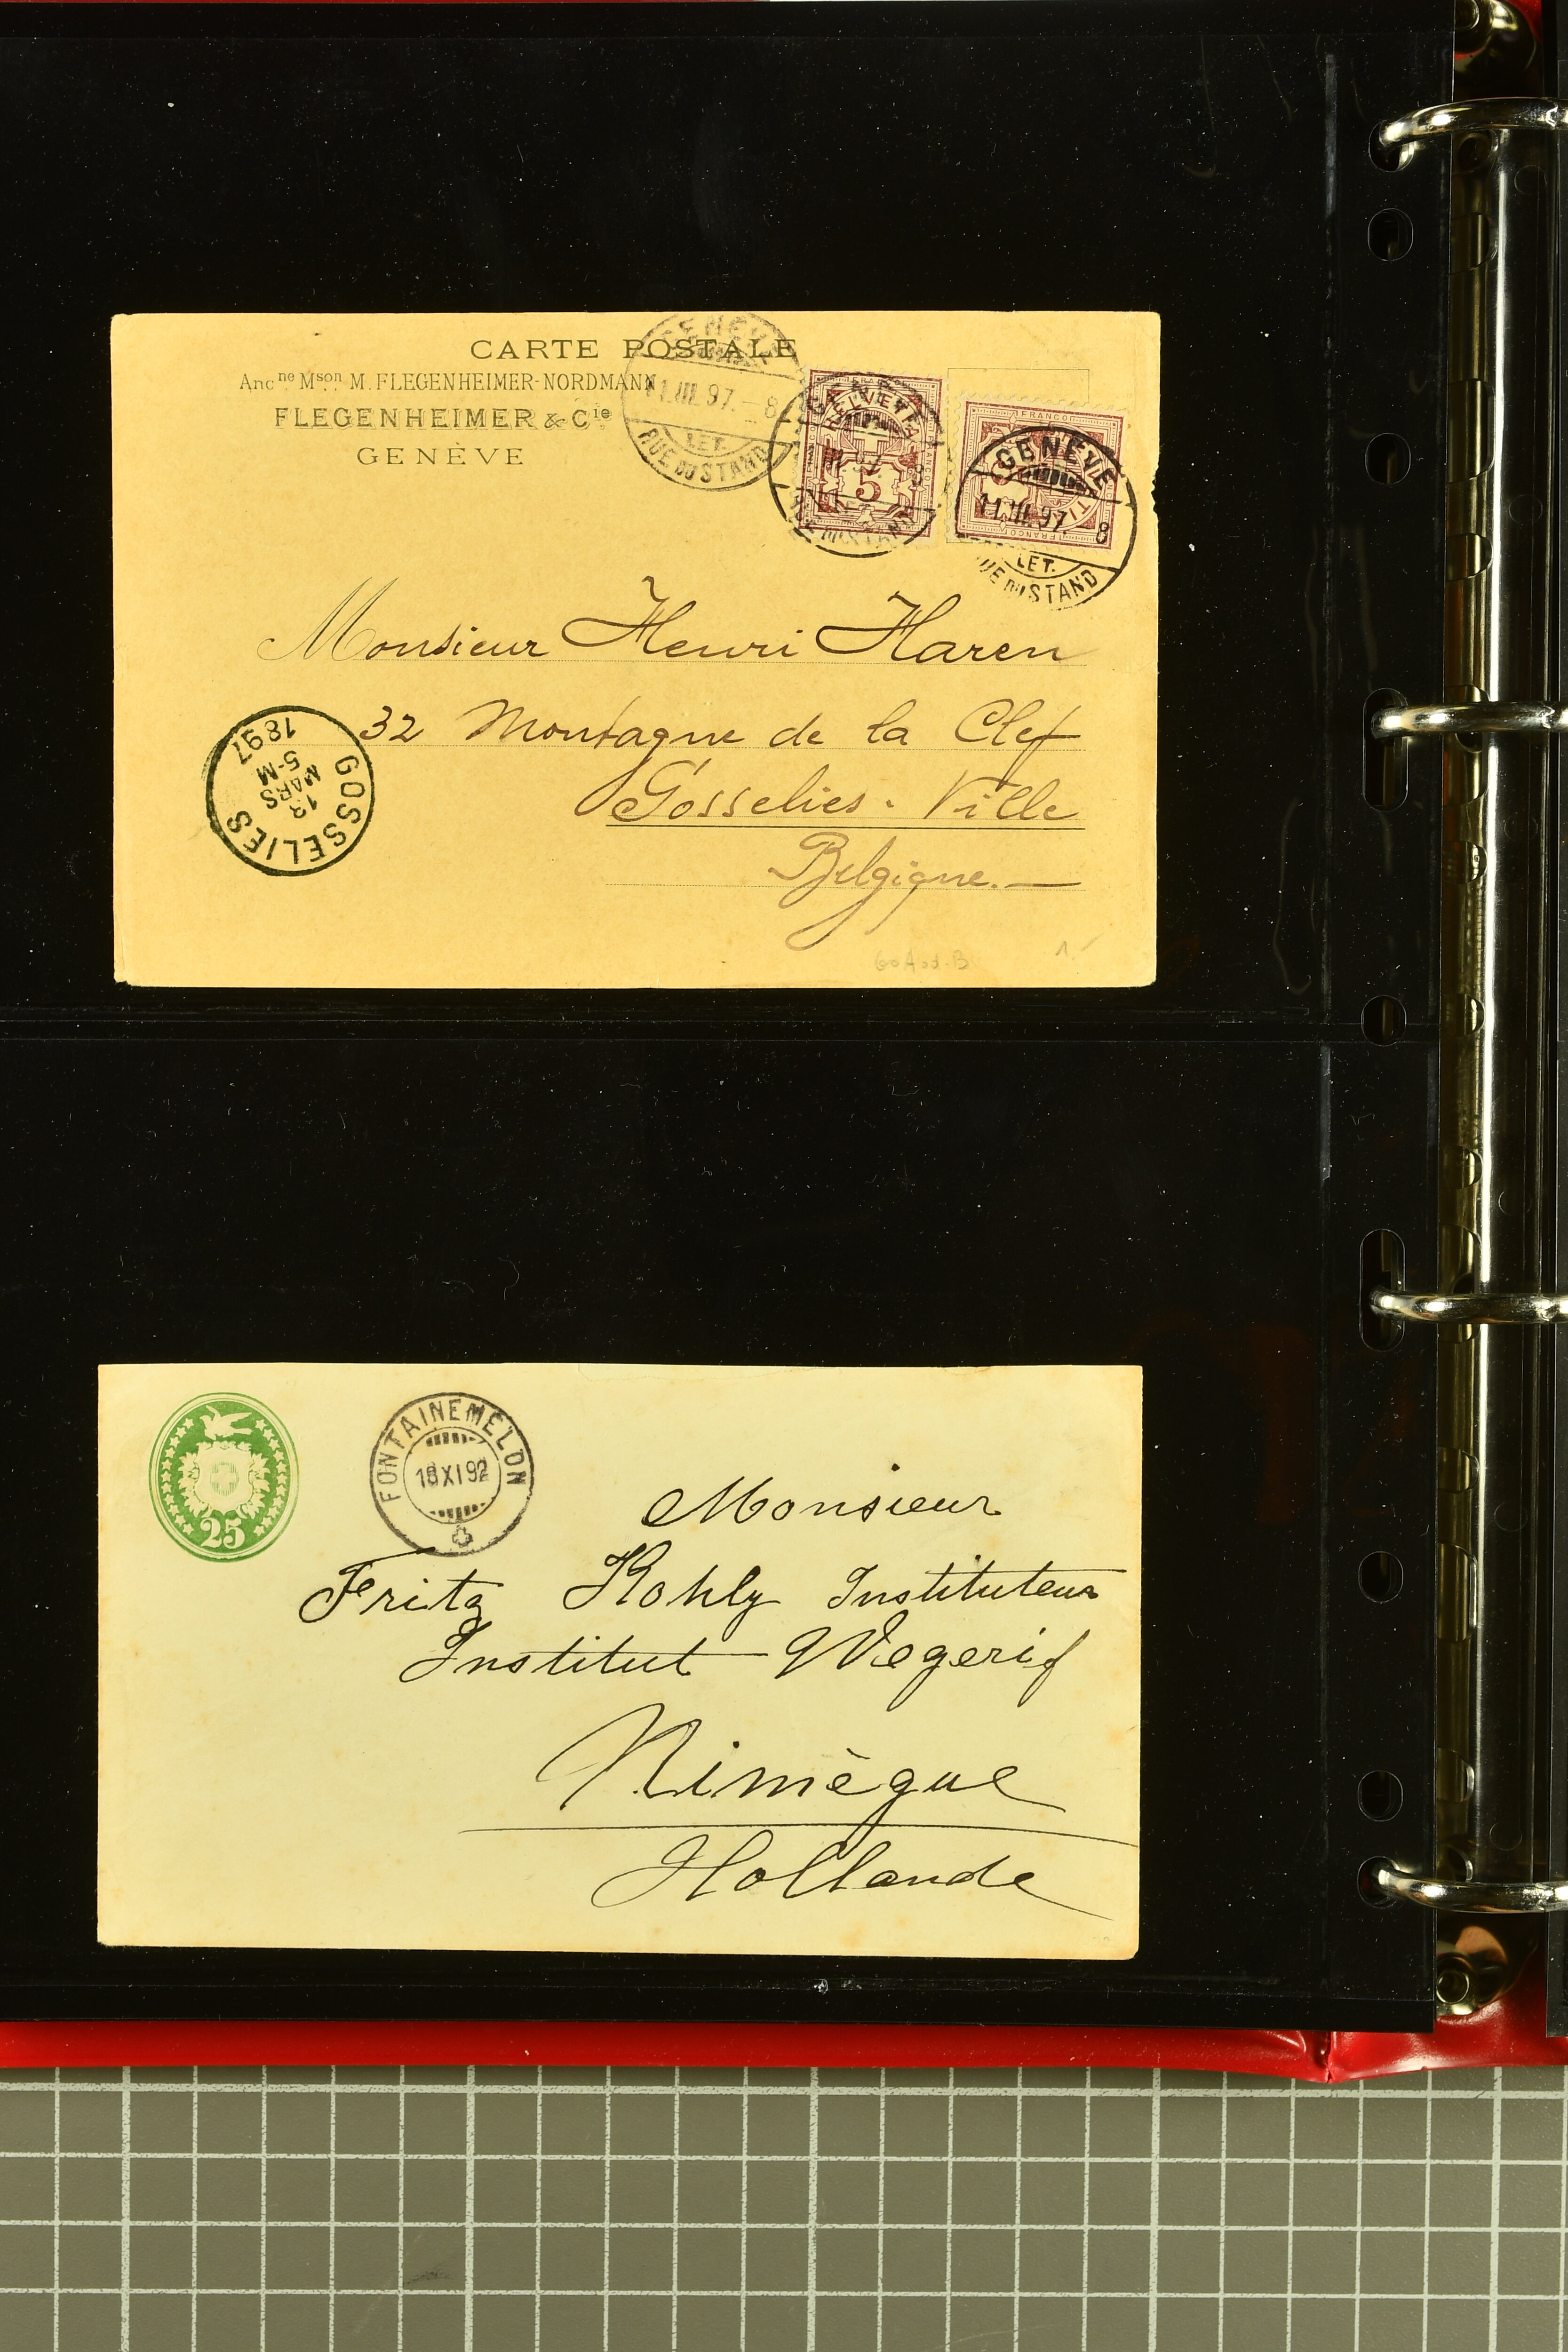 CARTE POSTALE
Anc ne Mson M. FLEGENHEIMER-NORDMANN
FLEGENHEIMER & Cie
GENÈVE
GENÈVE
11.III.97.-8
LET.
RUE DU STAND
FRANCO
HELVETIA
5
GENÈVE
RUE DU STAND
FRANCO
GENÈVE
11.III.97. 8
LET.
RUE DU STAND
FRANCO
Monsieur Henri Haren
32 Montagne de la Clef
Gosselies - Ville
Belgique.—
GOSSELIES
13
MARS
5-M
1897
25
FONTAINEMELON
18 XI 92
Monsieur
Fritz Kohly Instituteur
Institut Wegerif
Nimègue
Hollande